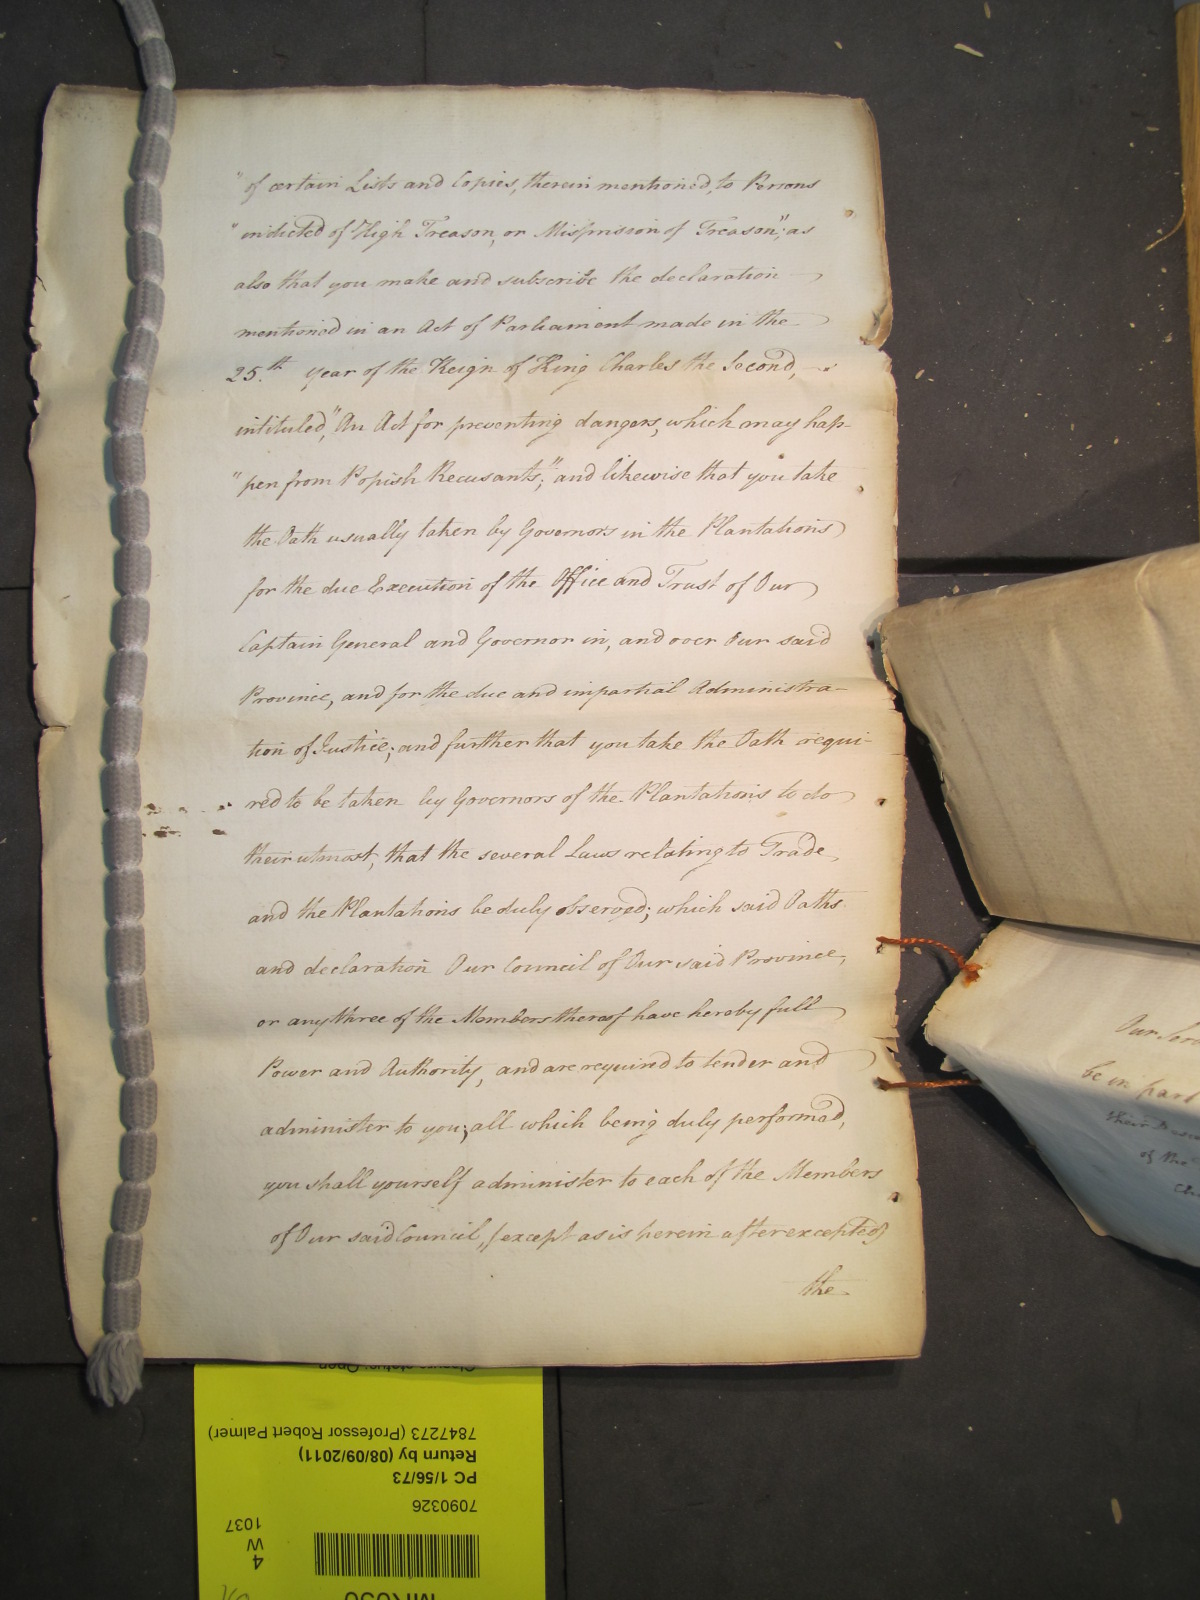 "of certain Lists and Copies, therein mentioned, to Persons
"indicted of High Treason, or Misprision of Treason"; as
also that you make and subscribe the declaration
mentioned in an Act of Parliament made in the
25.th year of the Reign of King Charles the Second,
intituled, "An Act for preventing dangers, which may hap-
"pen from Popish Recusants"; and likewise that you take
the Oath usually taken by Governors in the Plantations
for the due Execution of the Office and Trust of Our
Captain General and Governor in, and over Our said
Province, and for the due and impartial Administra-
tion of Justice; and further that you take the Oath requi-
red to be taken by Governors of the Plantations to do
their utmost, that the several Laws relating to Trade
and the Plantations be duly observed; which said Oaths
and declaration Our Council of Our said Province,
or any three of the Members thereof have hereby full
Power and Authority, and are required to tender and
administer to you; all which being duly performed,
you shall yourself administer to each of the Members
of Our said Council, (except as is herein after excepted)
the
Our
be in part
their
of the
Closure status: Open
7847273 (Professor Robert Palmer)
Return by (08/09/2011)
PC 1/56/73
7090326
4
W
1037